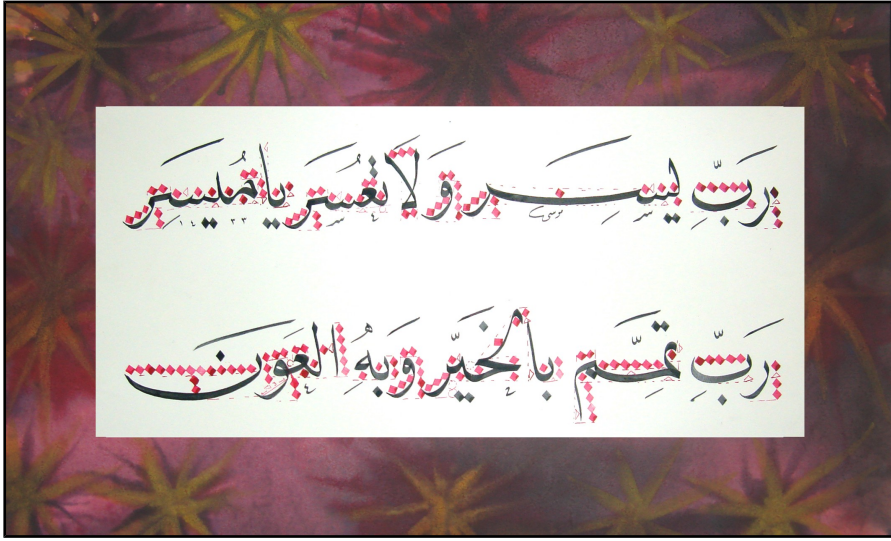 رَبِّ يَسِّرْ وَلَا تُعَسِّرْ يَا مُيَسِّرَ
رَبِّ تَمِّمْ بِالْخَيْرِ وَبِهِ الْعَوْنَ